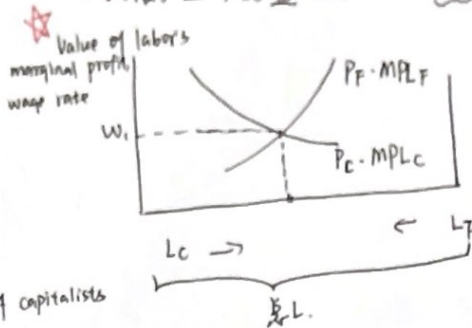 Value of labor's
marginal profit,
wage rate
P_F · MPL_F
W₁
P_C · MPL_C
L_C →
←
capitalists
总L.